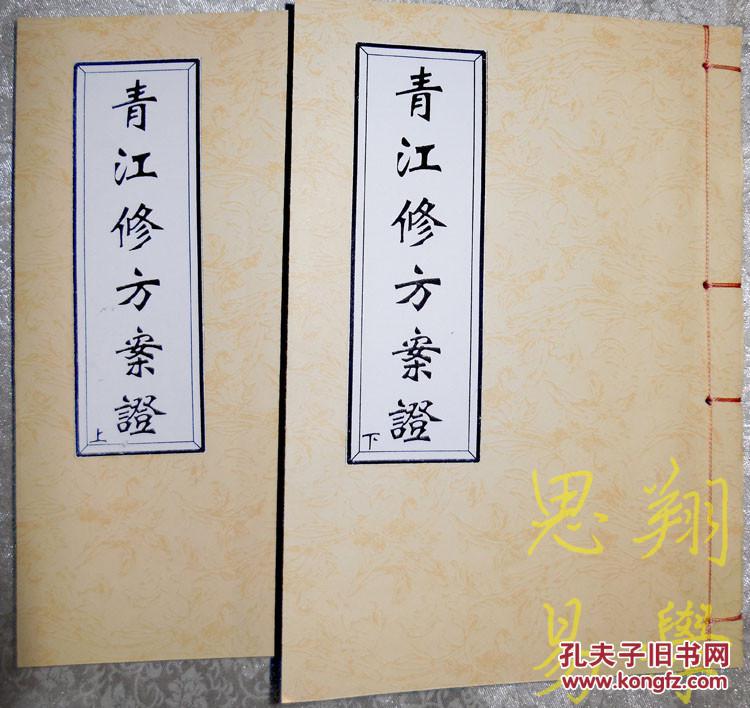 青江修方案證
上
青江修方案證
下
思翔
易學
孔夫子旧书网
www.kongfz.com